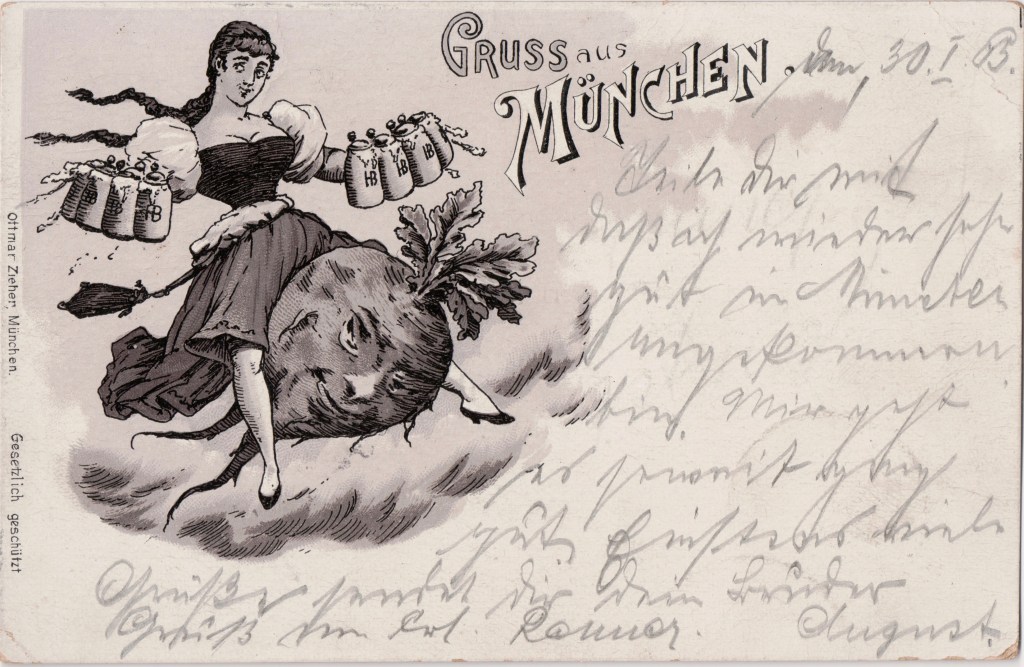 GRUSS aus
MÜNCHEN.
den 30. I.
Teile dir mit
daß ich wieder sehr
gut in München
angekommen
bin. Mir geht
es soweit ganz
gut. viele
Grüße sendet dir dein Bruder
August.
Gruß an Frl.
HB
HB
HB
HB
Ottmar Zieher, München.
Gesetzlich geschützt